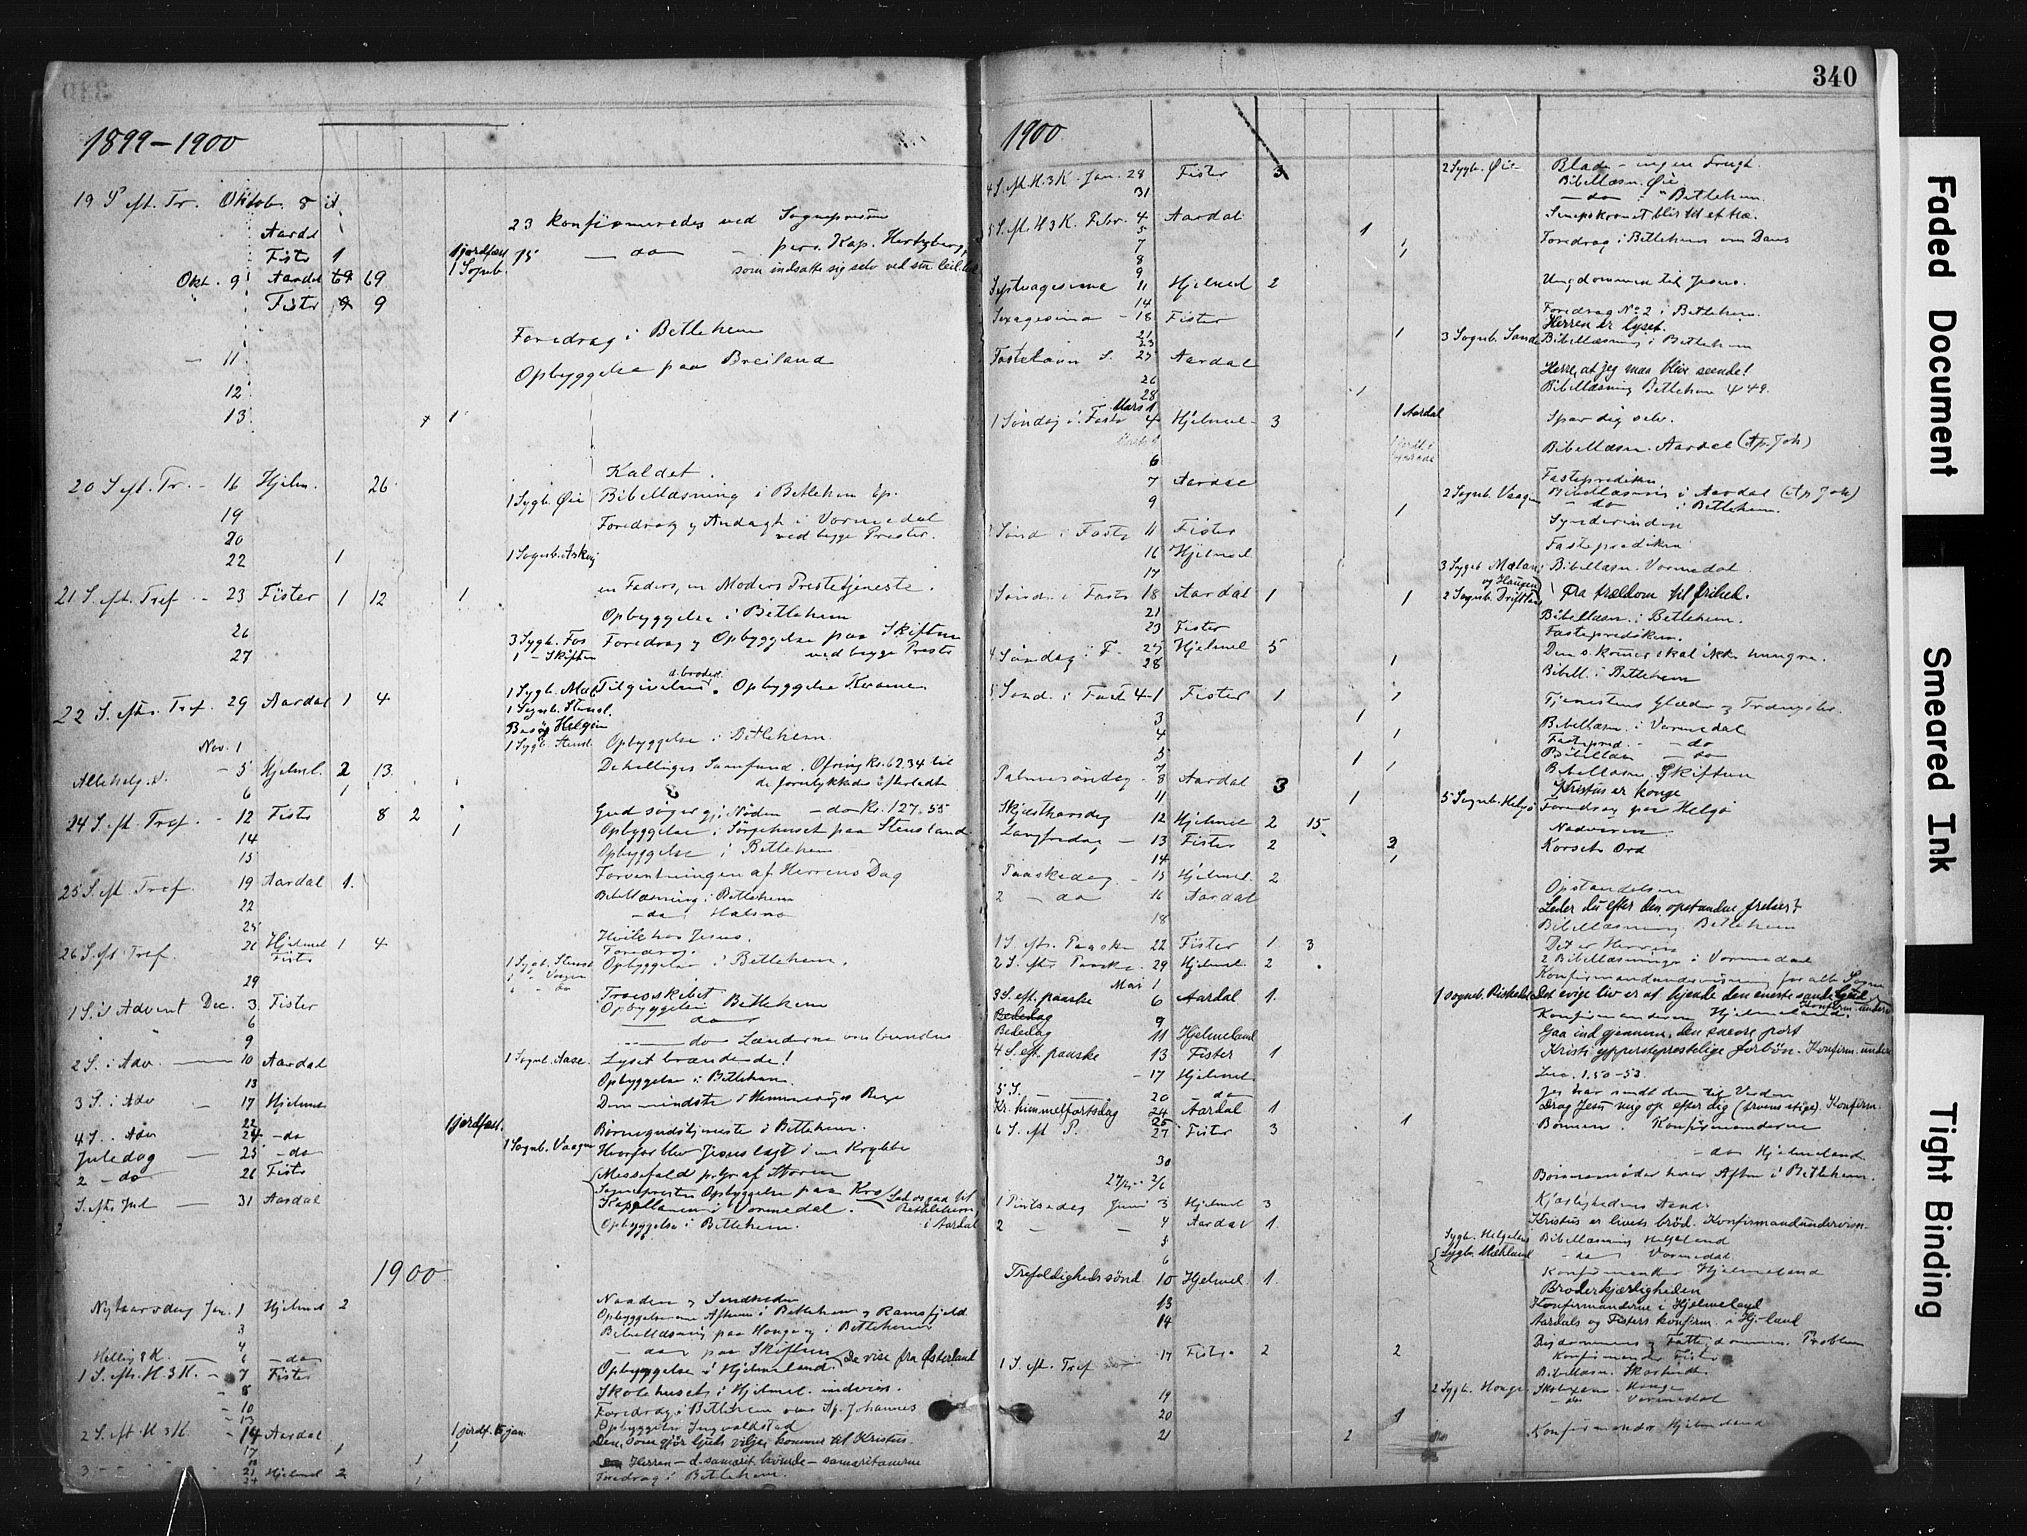 1899-1900
19 S eft. Tr. Oktob. 8
23 konfirmeredes ved Sognepresten
Aardal
Fister 1 1 jordfæst. 15 — do — pers. Kap. Hertzberg,
1 Sognb. som indsatte sig selv ved sin
Okt. 9 Aardal 69 69
Fister 9 9
Foredrag i Betlehem
- 11 Opbyggelse paa Breiland
12
13 1
Kaldet.
20 S eft. Tr. - 16 Hjelm. 26 1 Sygb. Øie Bibellæsning i Betlehem Ep.
19 Foredrag og Andagt i Vormedal
20 ved begge Prester.
22 1 1 Sognb.
21 S. eft. Tref - 23 Fister 1 12 1 en Faders, en Moders Prestetjeneste.
Opbyggelse i Betlehem
26 3 Sygb. Fos Foredrag og Opbyggelse paa Skiftun
27 1 - Skiftun ved begge Prester
22 S. efter Tref. 29 Aardal 1 4 1 Sygb. Tilgivelse. Opbyggelse Kvame
1 Sognb. Stensl.
Besøg Helgøen
Nov. 1 1 Sygb. Stensl. Opbyggelse i Betlehem.
Allehelg. S. - 5 Hjelmel. 2 13. De helliges Samfund. Ofring kr. 62.34 til
6 1 de forulykkedes Efterladte
24 S. eft. Tref. - 12 Fister 8 2 Gud søger gj. Nøden — do kr. 127.55
14 1 Opbyggelse i Sørgehuset paa Stensland
15 Opbyggelse i Betlehem
25 S. eft. Tref. 19 Aardal 1. Forventningen af Herrens Dag
22 Bibellæsning i Betlehem
25 — do i Halsne
26 S. eft. Tref. 26 Hjelmel 1 4 Hvile hos Jesus.
Fister Foredrag.
29 1 Sygb. Stensl Opbyggelse i Betlehem.
1 S. i Advent Dec. 3 Fister Troesskabet
6 Opbyggelse i Betlehem
9 — do Lænderne ombundne
2 S. i Adv — 10 Aardal 1 Sognb. Aase. Lyset brændende!
13 Opbyggelse i Betlehem.
3 S. i Adv — 17 Hjelmel Den mindste i Himmeriges Rige
22 1 jordfæst.
4 S. i Adv 24 - do Børnegudstjeneste i Betlehem.
Juledag — 25 - do 1 Sognb. Vaagen Hvorfor blev Jesus lagt i en Krybbe
2 - do 26 Fister Messefald p. Gr. af Storm
S. eft. Jul — 31 Aardal Sognepresten Opbyggelse paa Kro
Kapellanen i Vormedal. Lad os gaa til Bethlehem,
Opbyggelse i Betlehem. i Aardal
1900
Nytaarsdag Jan. 1 Hjelmel 2 Naaden og Sandheden
3 Opbyggelse om Aftenen i Betlehem og Ramsfjeld
4 Bibellæsning paa Hauge og i Betlehem
Hellig 3 K. — 6 - do — do paa Skiftun
1 S. eft. H 3 K. - 7 Fister Opbyggelse i Hjelmeland. De vise fra Østerland
- 8 Skolehuset i Hjelmel. indvies.
- 10 Foredrag i Betlehem over Ap. Johannes
- 13 Opbyggelse Ingvaldstad
2 S. eft H 3 K. - 14 Aardal 1 jordf. 15 jan. Den, som gjør lyset vilje, kommer til Kristus.
17 1 1
21 Hjelmel 2 Herren - d. samarit. kvinde - samaritanerne
24 1 Foredrag i Betlehem.
340
1900
4 S. eft. H. 3 K. Jan. 28 Fister 3 2 Sygb. Øie Blade - ingen Frugt.
31 Bibellæsn. Øie
— do — Betlehem.
5 S. eft H 3 K. Febr. 4 Aardal Senepskornet blir til et træ.
5 1
7 1 Foredrag i Betlehem om Davis
8
9
Septuagesima 11 Hjelmel 2 Ungdommen til Jesus.
14 Foredrag No 2 i Betlehem.
Sexagesima - 18 Fister Herren er lyset.
21 1 3 Sognb. Sande Bibellæsning i Betlehem
23
Fastelavn S. 25 Aardal Herre, at jeg maa blive seende!
26 Bibellæsning Betlehem 4 49.
28 1
Mars 1 1 Aardal
1 Søndag i Faste 4 Hjelmel- 3 Spar dig selv.
Bibellæsn. Aardal (Ap. Joh)
6
7 Aardal Fasteprediken
9 2 Sognb. Vaagen Bibellæsning i Aardal (Ap Joh)
1 - do i Betlehem.
2 Sønd i Faste 11 Fister Synderinden
16 Hjelmel Fasteprediken
17 3 Sygeb. Mæland Bibellæsn. Vormedal.
og Haugen
Sønd. i Faste 18 Aardal 1 1 2 Sognb. Fra trældom til frihed.
21 Bibellæsn. i Betlehem.
23 Fister Fasteprediken.
4 Søndag i F. 25 Hjelmel 5 Den s. kmer skal ikke hungre.
28 1 Bibell. i Betlehem
5 Sønd. i Fast 4-1 Fister 1 1 Tjenestens Glæder og Trængsler.
3 1
4 1 Bibellæsn. i Vormedal
5 1 Fastepred. — do
7 1 Bibellæs — do
Palmesøndag - 8 Aardal 3 Bibellæsn. Skiftun
Kristus er konge
11 1 5 Sognb. Helgø Foredrag paa Helgø
Skjærthorsdag 12 Hjelmel 2 15 Nadveren.
Langfredag — 13 Fister 2 2 Korsets Ord
14 1
Paaskedag — 15 Hjelmel. 2 Opstandelsen
2 — do 16 Aardal Leder du efter den opstandne frelser?
18 Bibellæsning Betlehem
1 S. eft. Paaske 22 Fister 1. 3 Det er Herren
2 S. eft. Paaske. 29 Hjelmel. 2 2 Bibellæsninger i Vormedal
Mai 1 Konfirmandundervisning for alle Sogne
3 S. eft. paaske 6 Aardal 1. 1 Sognb. Riskedal Det evige liv er at kjende den eneste sande Gud
Bededag 9 Konfirmanderne Hjelmeland.
Bededag 11 Hjelmeland Gaa ind gjennem den snevre port
4 S. eft. paaske 13 Fister 1 Kristi ypperstepræstelige forbøn. Konfirm. underv.
- 17 Hjelmel Luc. 1,50-53
5 S. 20 do Jeg har sendt dem til Verden
Kr. himmelfartsdag 24 Aardal 1 Drag Jesu mig op efter dig (troens stige). Konfirm.
25 1
6 S. eft P. 27 Fister 3 Bønnen. Konfirmanderne
30 - do Hjelmeland
27/5 - 2/6 Bønnemøder hver Aften i Betlehem.
1 Pintsedag Juni 3 Hjelmel 3 Kjærlighedens Aand.
2 — — 4 Aardal 1. Kristus er livets brød. Konfirmandundervisn.
5 Sygb. Helgeland Bibellæsning Helgeland
6 Sygb. Mæhlund - do Vormedal.
Trefoldighedssønd. 10 Hjelmel. 1. Konfirmander Hjelmeland
Broderkjærligheden
13 Konfirmanderne i Hjelmeland
14 Aardals og Fisters konfirm. i Hj-land
1 S. eft. Tref 17 Fister 2 2 Rigdommens og Fattigdommens Problem
Konfirmander Fister
19 Bibellæsn.
20 1 2 Sygb. Hauge - Hauge
- do Vormedal
21 2 Konfirmander Hjelmeland
Faded Document
Smeared Ink
Tight Binding